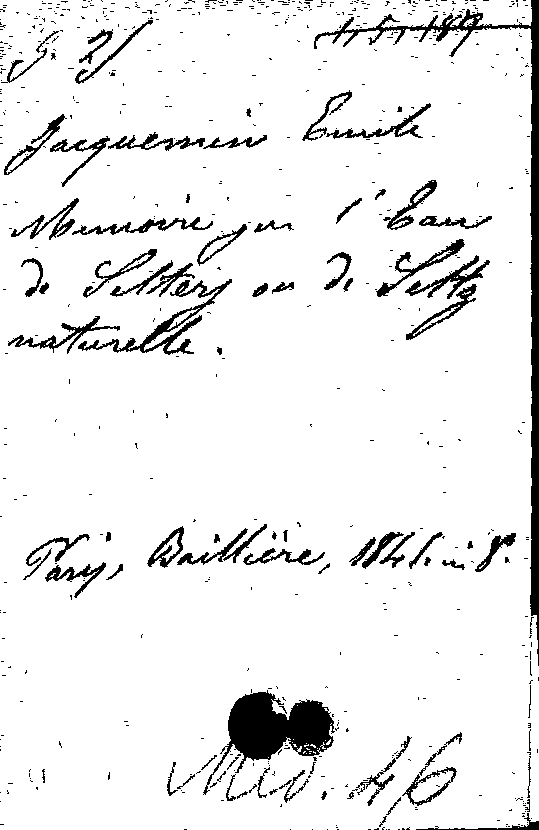 Jacquemin Emile
Memoire sur l'Eau
de Selters ou de Seltz
naturelle.
Paris, Baillière, 1841. in 8°.
Med. 46